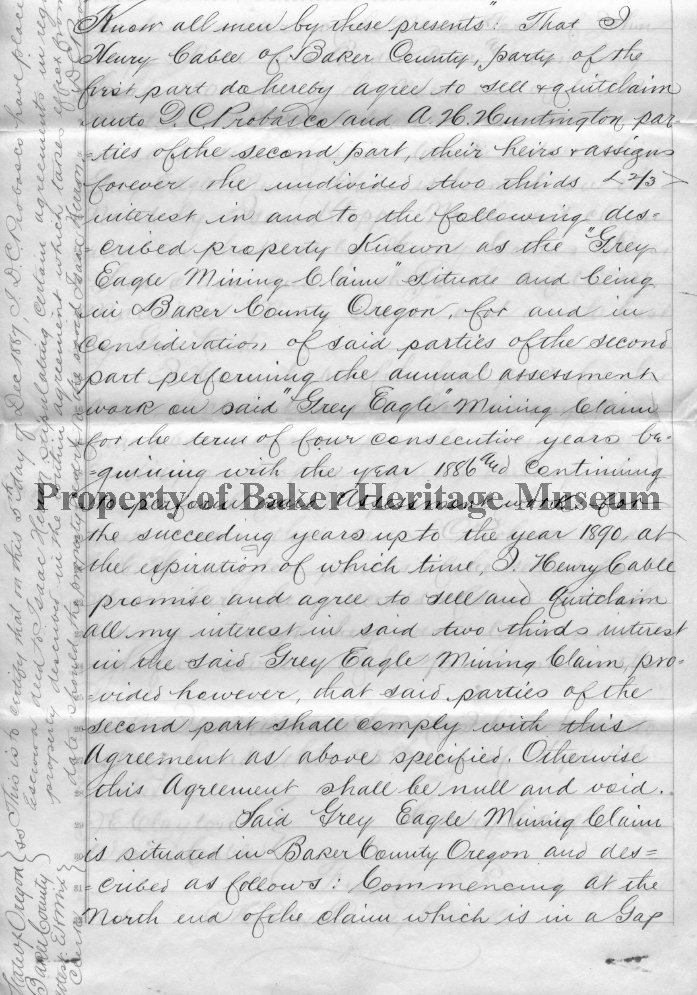 Know all men by these presents": That I
Henry Cable of Baker County, party of the
first part do hereby agree to sell & quitclaim
unto D. C. Probasco and A. H. Huntington par-
-ties of the second part, their heirs & assigns
forever the undivided two thirds <2/3>
interest in and to the following des=
-cribed property Known as the "Grey
Eagle Mining Claim" situate and being
in Baker County Oregon, for and in
consideration of said parties of the second
part performing the annual assessment
work on said "Grey Eagle" Mining Claim
for the term of four consecutive years be-
-guining with the year 1886 and continuing
to perform said Assessment work for
the succeeding years up to the year 1890, at
the expiration of which time, I Henry Cable
promise and agree to sell and Quitclaim
all my interest in said two thirds interest
in the said Grey Eagle Mining Claim, pro-
-vided however, that said parties of the
second part shall comply with this
Agreement as above specified. Otherwise
this Agreement shall be null and void.
Said Grey Eagle Mining Claim
is situated in Baker County Oregon and des=
-cribed as follows: Commencing at the
North end of the claim which is in a Gap
Property of Baker Heritage Museum
State of Oregon } ss This is to certify that on this 5th day of Dec 1887 I. D. C. Probasco have place
Baker County } Escrow deed to Isaac stipulating certain agreements in
property described in the within agreement which takes effect from
date should the property